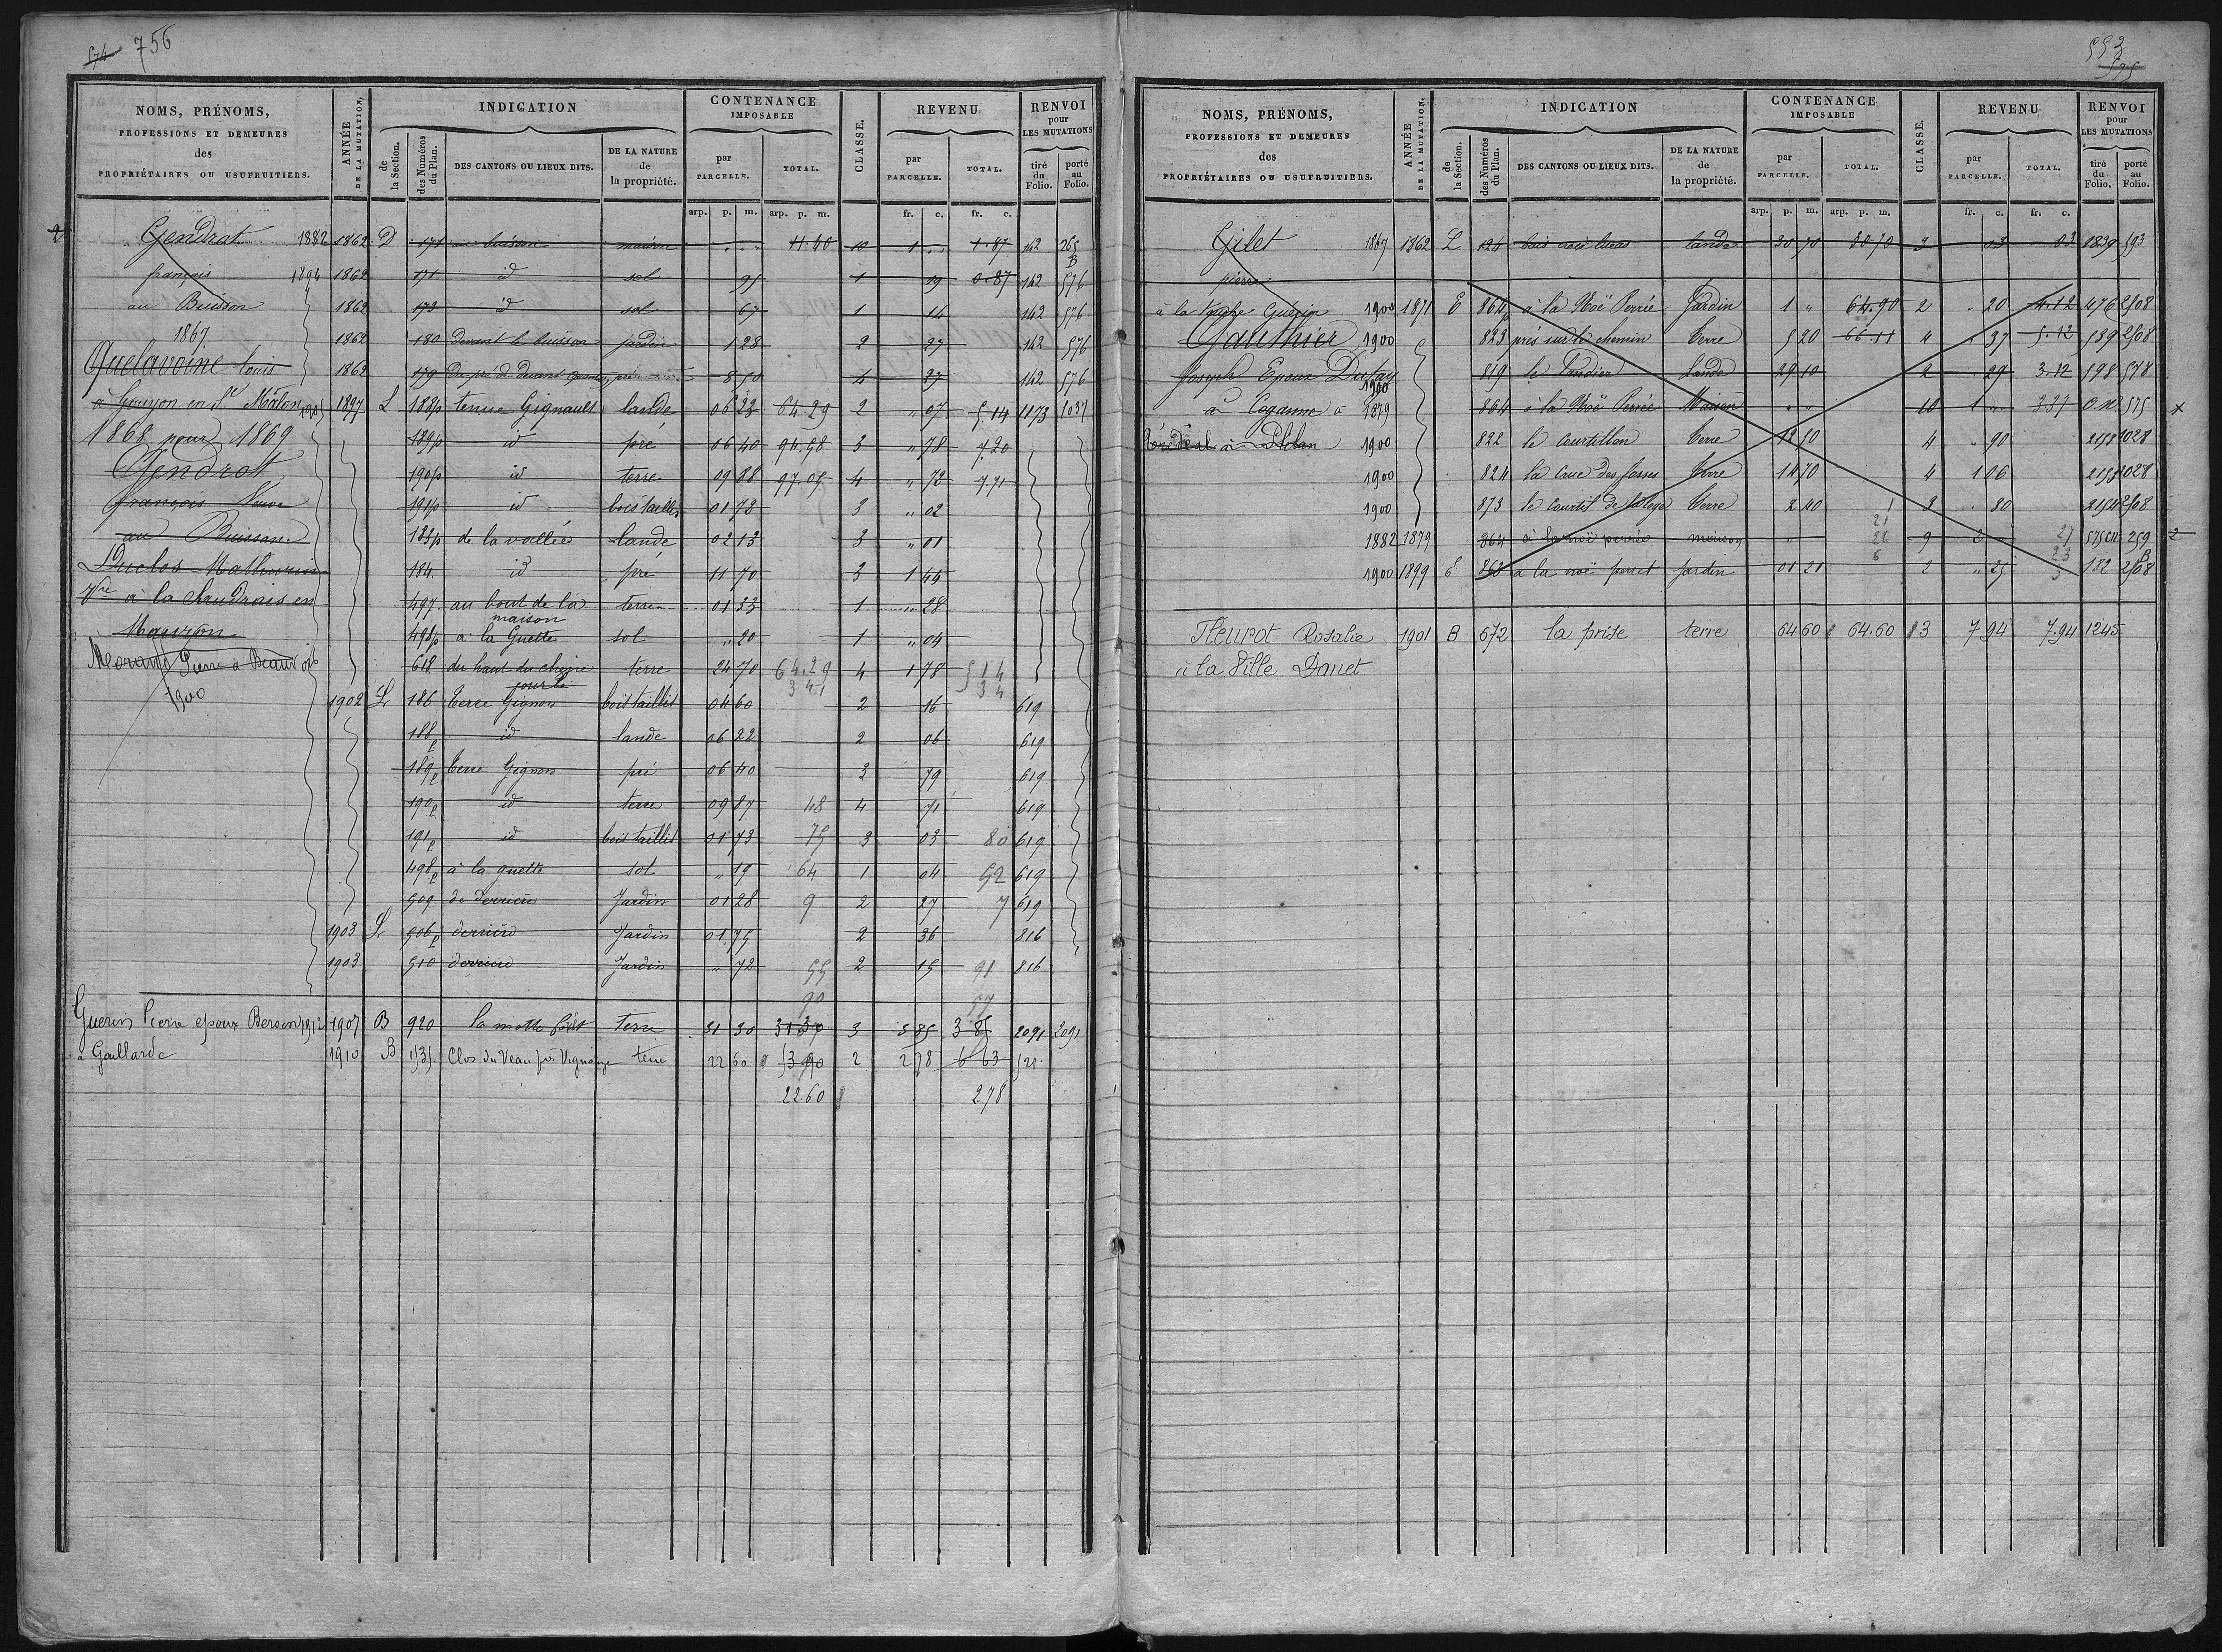 574 756
NOMS, PRÉNOMS,
PROFESSIONS ET DEMEURES
des
PROPRIÉTAIRES OU USUFRUITIERS.
ANNÉE
DE LA MUTATION.
INDICATION
de
la Section.
des Numéros
du Plan.
DES CANTONS OU LIEUX DITS.
DE LA NATURE
de
la propriété.
CONTENANCE
IMPOSABLE
par
PARCELLE.
TOTAL.
CLASSE.
REVENU
par
PARCELLE.
TOTAL.
RENVOI
pour
LES MUTATIONS
tiré
du
Folio.
porté
au
Folio.
arp. p. m. arp. p. m. fr. c. fr. c.
Gendrot 1882 1862 D 171 au buisson maison 11.40 10 1 1.87 142 265 B
françois 1894 1862 171 id sol 95 1 19 0.87 142 576
au Buisson 1862 173 id sol 67 1 14 142 576
1867 1862 180 Devant le buisson jardin 1 28 2 27 142 576
Quelavoine Louis 1862 179 8 50 4 27 142 576
à Gouyon en St Malon 1905 1897 L 188p tenue Gignault lande 06 23 64 29 2 " 07 5.14 1173 1037
1868 pour 1869 189p id pré 06 40 94.58 3 " 78 7.20
Gendrot 190p id terre 09 88 97.05 4 " 72 7 71
françois Veuve 191p id bois taillis 01 73 3 " 02
au Buisson 183p de la vallée lande 02 13 3 " 01
Duclos Mathurin 184 id pré 11 70 3 1 44
Vve à la Saudrais en 497 au bout de la maison terre 01 33 1 " 28
Mauron 498p à la Guette sol " 20 1 " 04
Morand Pierre à Beauvois 618 du haut du chesne terre 24 70 64.29 4 1 78 5 14
1900 1902 L 186 Terre Gignon bois taillis 04 60 341 2 16 34 619
188p id lande 06 22 2 06 619
189p Terre Gignon pré 06 40 3 79 619
190p id terre 09 87 48 4 71 619
191p id bois taillis 01 73 75 3 03 80 619
498p à la guette sol " 19 64 1 04 52 619
509 de derriere Jardin 01 28 9 2 27 7 619
1903 L 506p derriere Jardin 01.75 2 36 816
1903 510 derriere Jardin " 72 55 2 15 91 816
90 57
Guerin Pierre epoux Bersin 1912 1907 B 920 la motte forêt Terre 31 30 31 30 3 3 85 3 85 2091 2091
à Gaillarde 1910 B 1535 Clos du Veau terre 22 60 53 90 2 2 78 6 63 521
22 60 2.78
552
575
NOMS, PRÉNOMS,
PROFESSIONS ET DEMEURES
des
PROPRIÉTAIRES OU USUFRUITIERS.
ANNÉE
DE LA MUTATION.
INDICATION
de
la Section.
des Numéros
du Plan.
DES CANTONS OU LIEUX DITS.
DE LA NATURE
de
la propriété.
CONTENANCE
IMPOSABLE
par
PARCELLE.
TOTAL.
CLASSE.
REVENU
par
PARCELLE.
TOTAL.
RENVOI
pour
LES MUTATIONS
tiré
du
Folio.
porté
au
Folio.
arp. p. m. arp. p. m. fr. c. fr. c.
Gilet 1867 1862 L 124 lande 30 70 30 70 3 03 03 1839 593
pierre
à la Guérin 1900 1871 E 864p à la Noë Perrée Jardin 1 " 64.90 2 " 20 4.12 476 2508
Gauthier 1900 823 près sur le chemin Terre 5 20 66.11 4 " 37 5.12 539 2508
Joseph Epoux Dufay 819 le Landier Lande 29 10 2 29 3.12 198 578
1900
à Coganne à 1879 864 à la Noë Perrée Maison " " 10 1 " 3.37 575
Plélan 1900 822 le Courtillon Terre 18 50 4 " 90 2158 1028
1900 824 la crue des fosses Terre 14 70 4 1 06 2158 1028
1900 873 le Courtil de Terre 2 40 3 " 30 2154 2508
1882 1879 864 à la noë perrée maison " 9 2 259 B
1900 1899 E 863 à la noë perret Jardin 01 21 2 " 25 182 2508
Fleurot Rosalie 1901 B 672 la prise terre 64 60 64.60 3 7 94 7.94 1245
à la Ville Danet